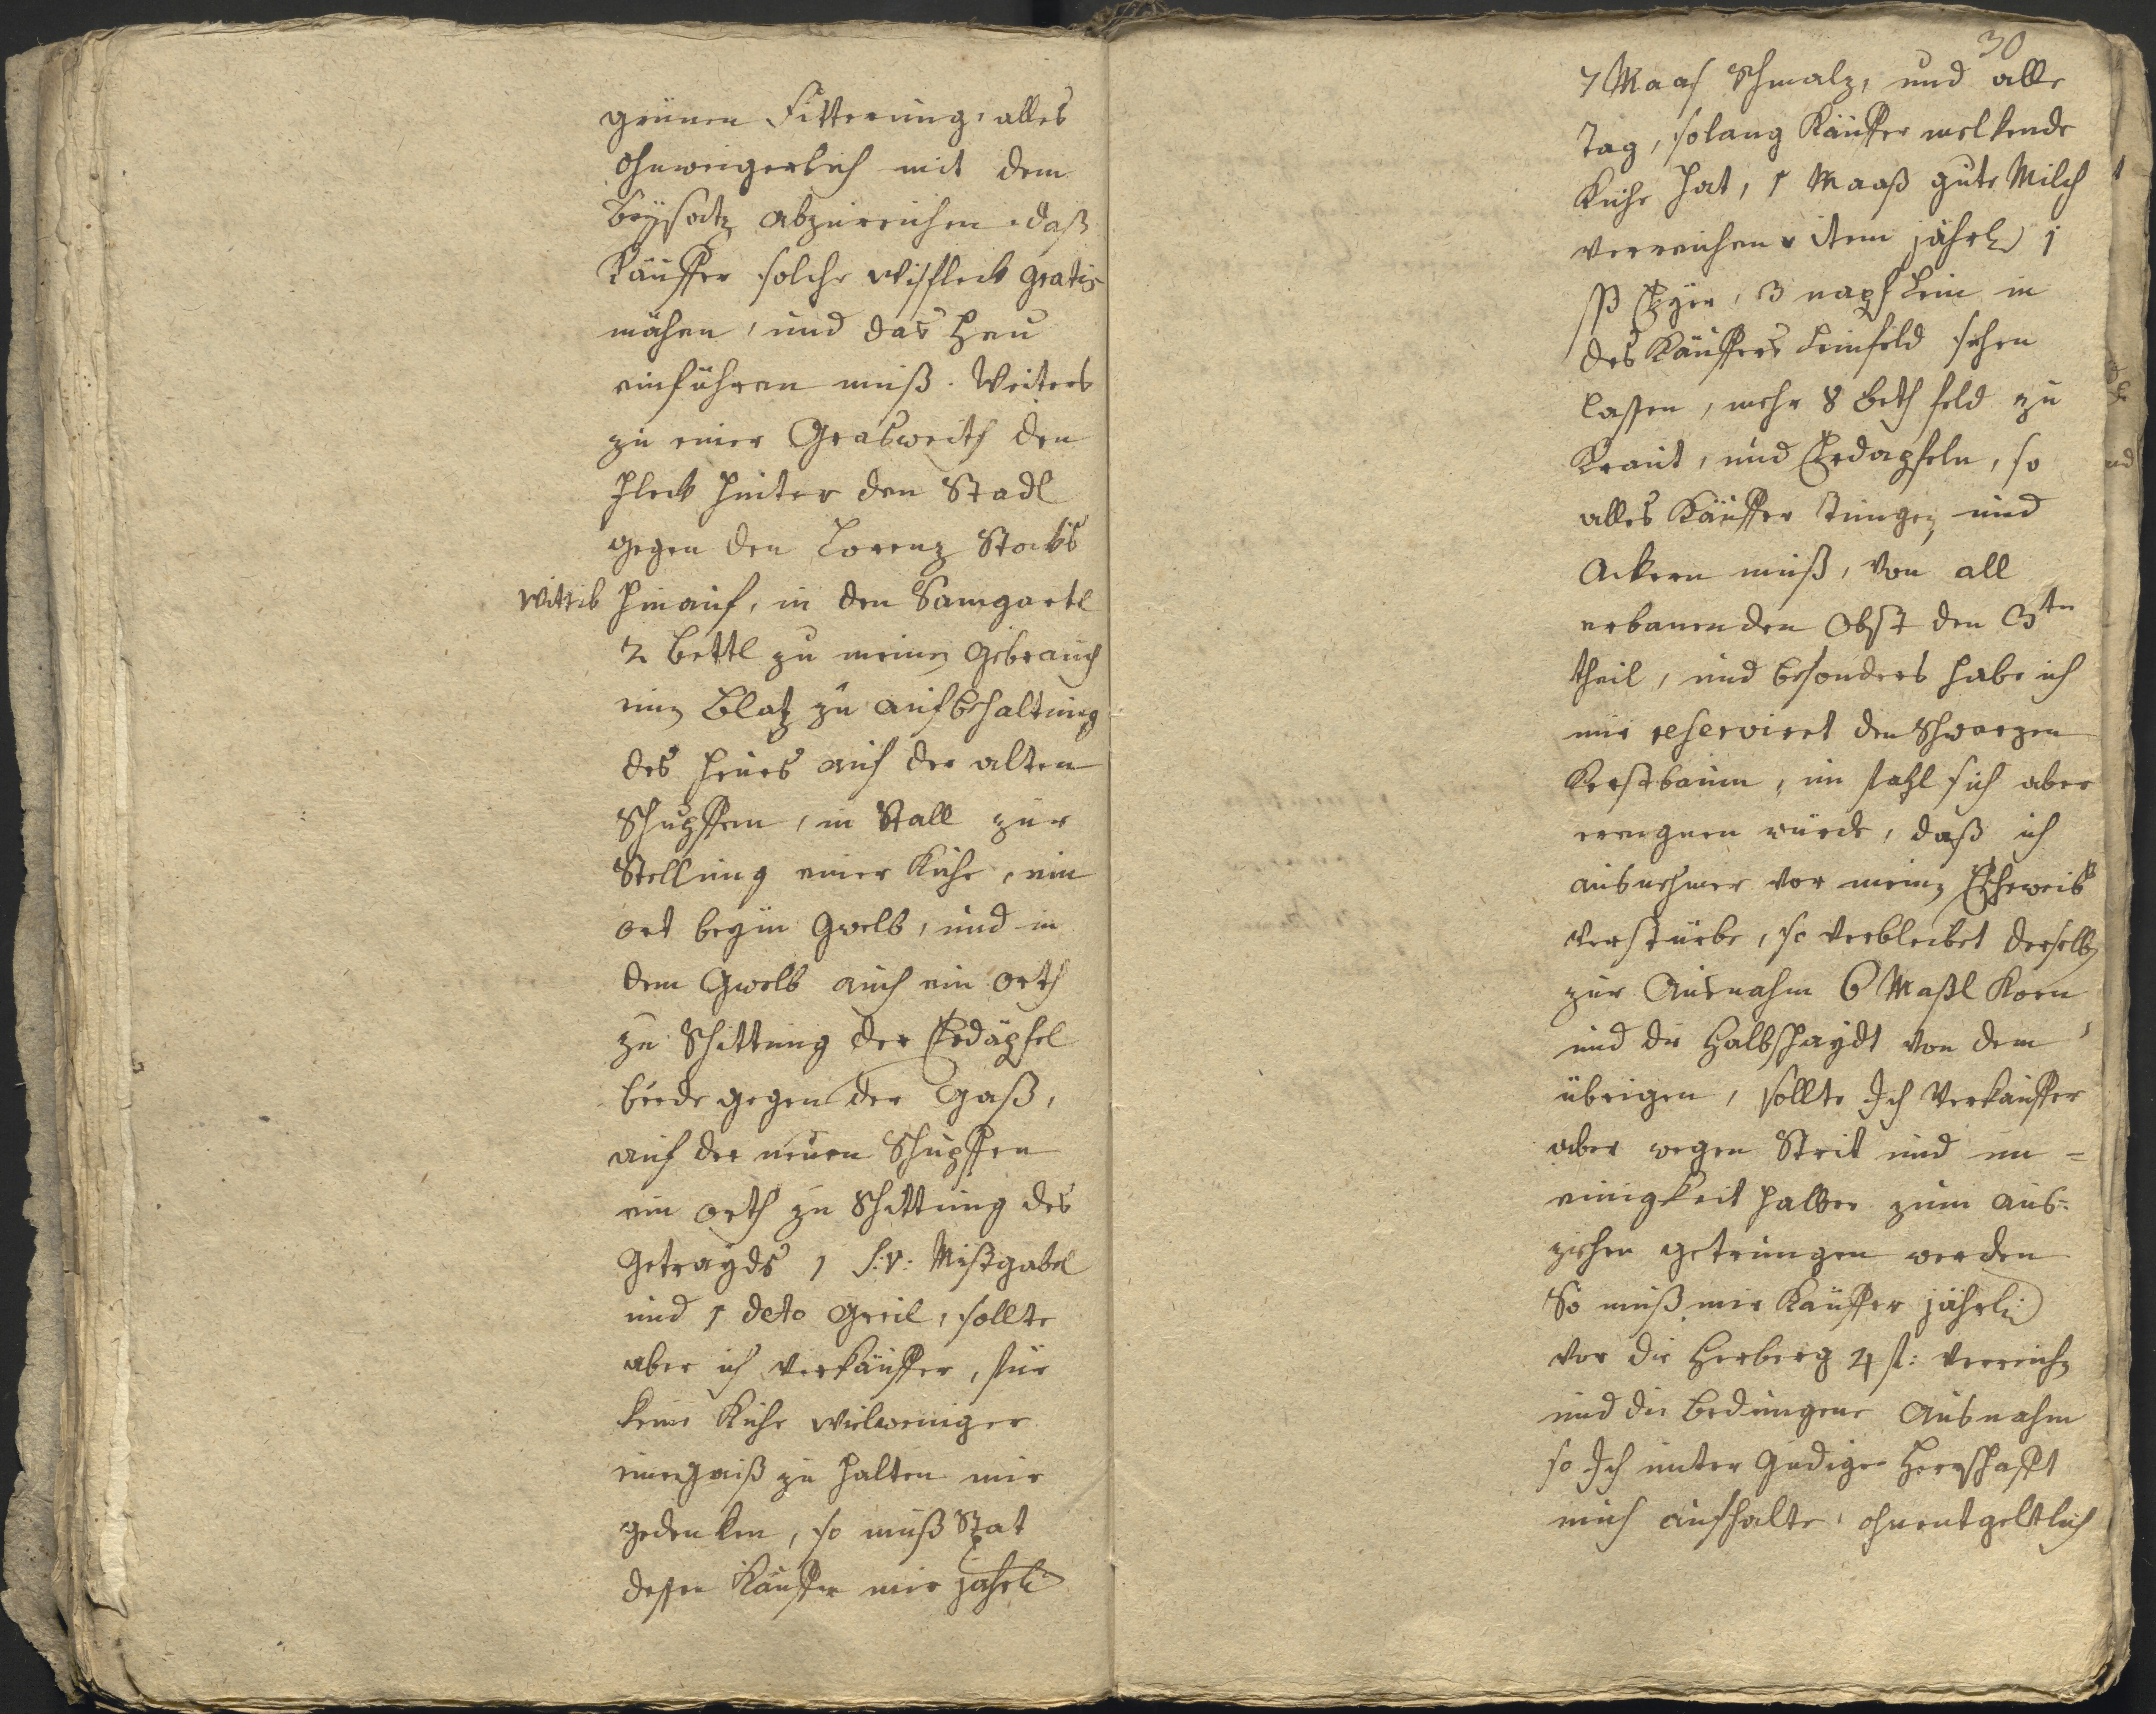 grünen Fitterung, alles
ohnweigerlich mit dem
beysatz abzureichen, daß
Käuffer solche Wisfleck gratis
mähen, und das Heu
einführen muß. Weiters
zu einer Grasweith den
Fleck hinter den Stadl
gegen den Lorenz Stocks
Wittib hinauf, in den Samgartl
2 bettl zu meinen gebrauch
einen Blatz zu aufbehaltung
des Heues auf der alten
Schupffen, in Stall zur
Stellung einer Kuhe, ein
ort beym Gwelb, und in
dem Gwelb auch ein orth
zu Schittung der Erdäpfel
beede gegen der Gaß,
auf der neuen Schupffen
ein orth zu Schittung des
Getrayds 1 S:v: Mistgabel
und 1 deto Greil, sollte
aber ich verkäuffer, für
keine Kuhe vielweniger
zu halten mir
gedenken, so muß Stat
dessen Käuffer mir jährl:
30
7 Maas Schmalz, und alle
Tag, solang Käuffer melkende
Kuhe hat, 1 Maaß gute Milch
verreichen, item jährl: 1
ßß Eyer, 3 napf Lein in
des Käuffers Leinfeld sehen
lassen, mehr 8 beth feld zu
Kraut, und Erdapfeln, so
alles Käuffer tungen und
Ackern muß, von all
erbauenden Obst den 3ten
theil, und besonders habe ich
mir reserviret den Schwarzen
Kerstbaum, im fahl sich aber
ereugnen würde, daß ich
ausnehmer vor meinen Eheweib
verstürbe, so verbleibet derselben
zur Ausnahm 6 Maßl Korn
und die Halbschaydt von dem
übrigen, sollte Ich Verkäuffer
aber wegen Strit und un=
einigkeit halber zum aus=
ziehen getrungen werden
So muß mir Käuffer jährl:
vor die Herberg 4 fl: verreichen
und die bedungene Ausnahm
so Ich unter Gnädiger Herrschafft
mich aufhalte, ohnentgeltlich